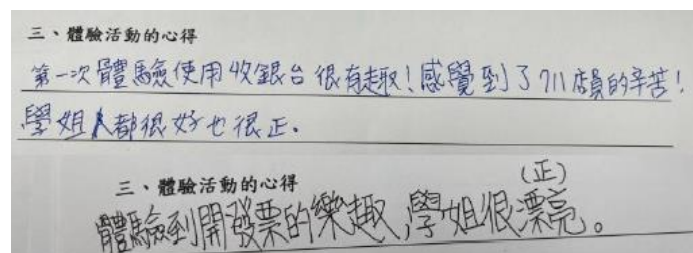 三、體驗活動的心得
第一次體驗使用收銀台很有趣!感覺到了711店員的辛苦!
學姐人都很好也很正。
三、體驗活動的心得
(正)
體驗到開發票的樂趣,學姐很漂亮。